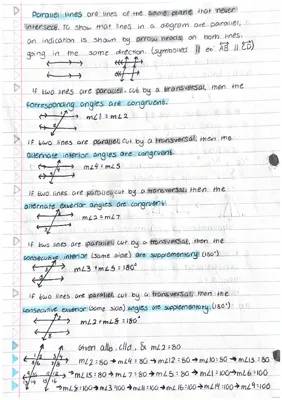 Parallel lines are lines of the same plane that never
intersect. To show that lines in a diagram are parallel,
an indication is shown by arrow heads on both lines
going in the same direction (symbolized || ex: AB || CD)
If two lines are parallel cut by a transversal, then the
corresponding angles are congruent.
m∠1 = m∠2
If two lines are parallel cut by a transversal, then the
alternate interior angles are congruent.
m∠4 = m∠5
If two lines are parallel cut by a transversal, then the
alternate exterior angles are congruent
m∠2 = m∠7
If two lines are parallel cut by a transversal, then the
consecutive interior (same side) are supplementary (180°)
m∠3 + m∠5 = 180°
If two lines are parallel cut by a transversal, then the
consecutive exterior (same side) angles are supplementary (180°)
m∠2 + m∠8 = 180°
Given a||b, c||d, & m∠2=80
m∠2=80 → m∠4=80 → m∠12=80 → m∠10=80 → m∠13=80
→ m∠15=80 → m∠7=80 → m∠5=80 → m∠1=100 → m∠6=100
→ m∠8=100 → m∠3=100 → m∠16=100 → m∠14=100 → m∠9=100